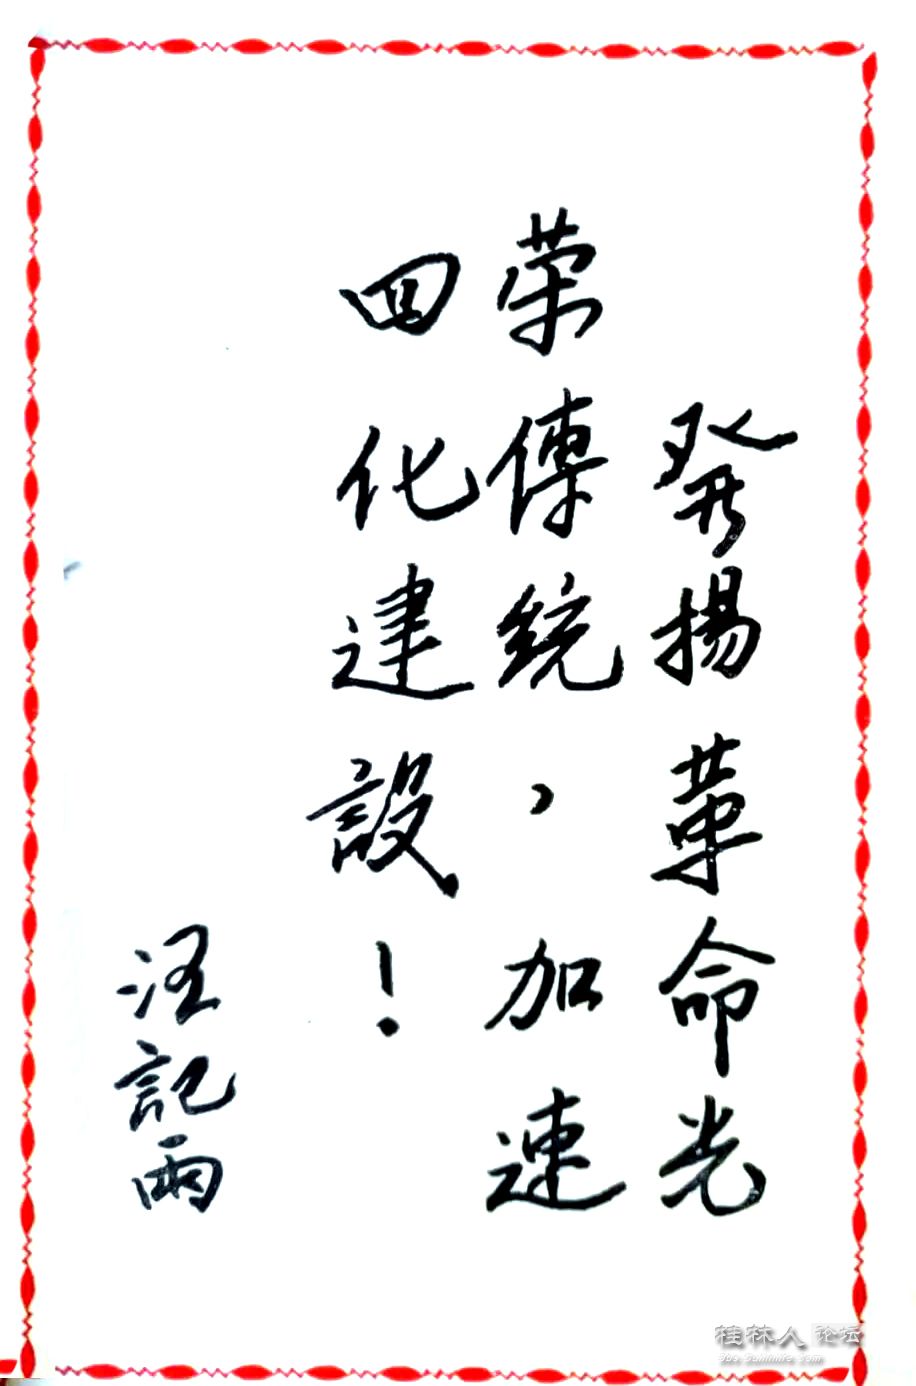 發揚革命光
荣傳統，加速
四化建設！
汪記雨
桂林人论坛
bbs.guilinlife.com